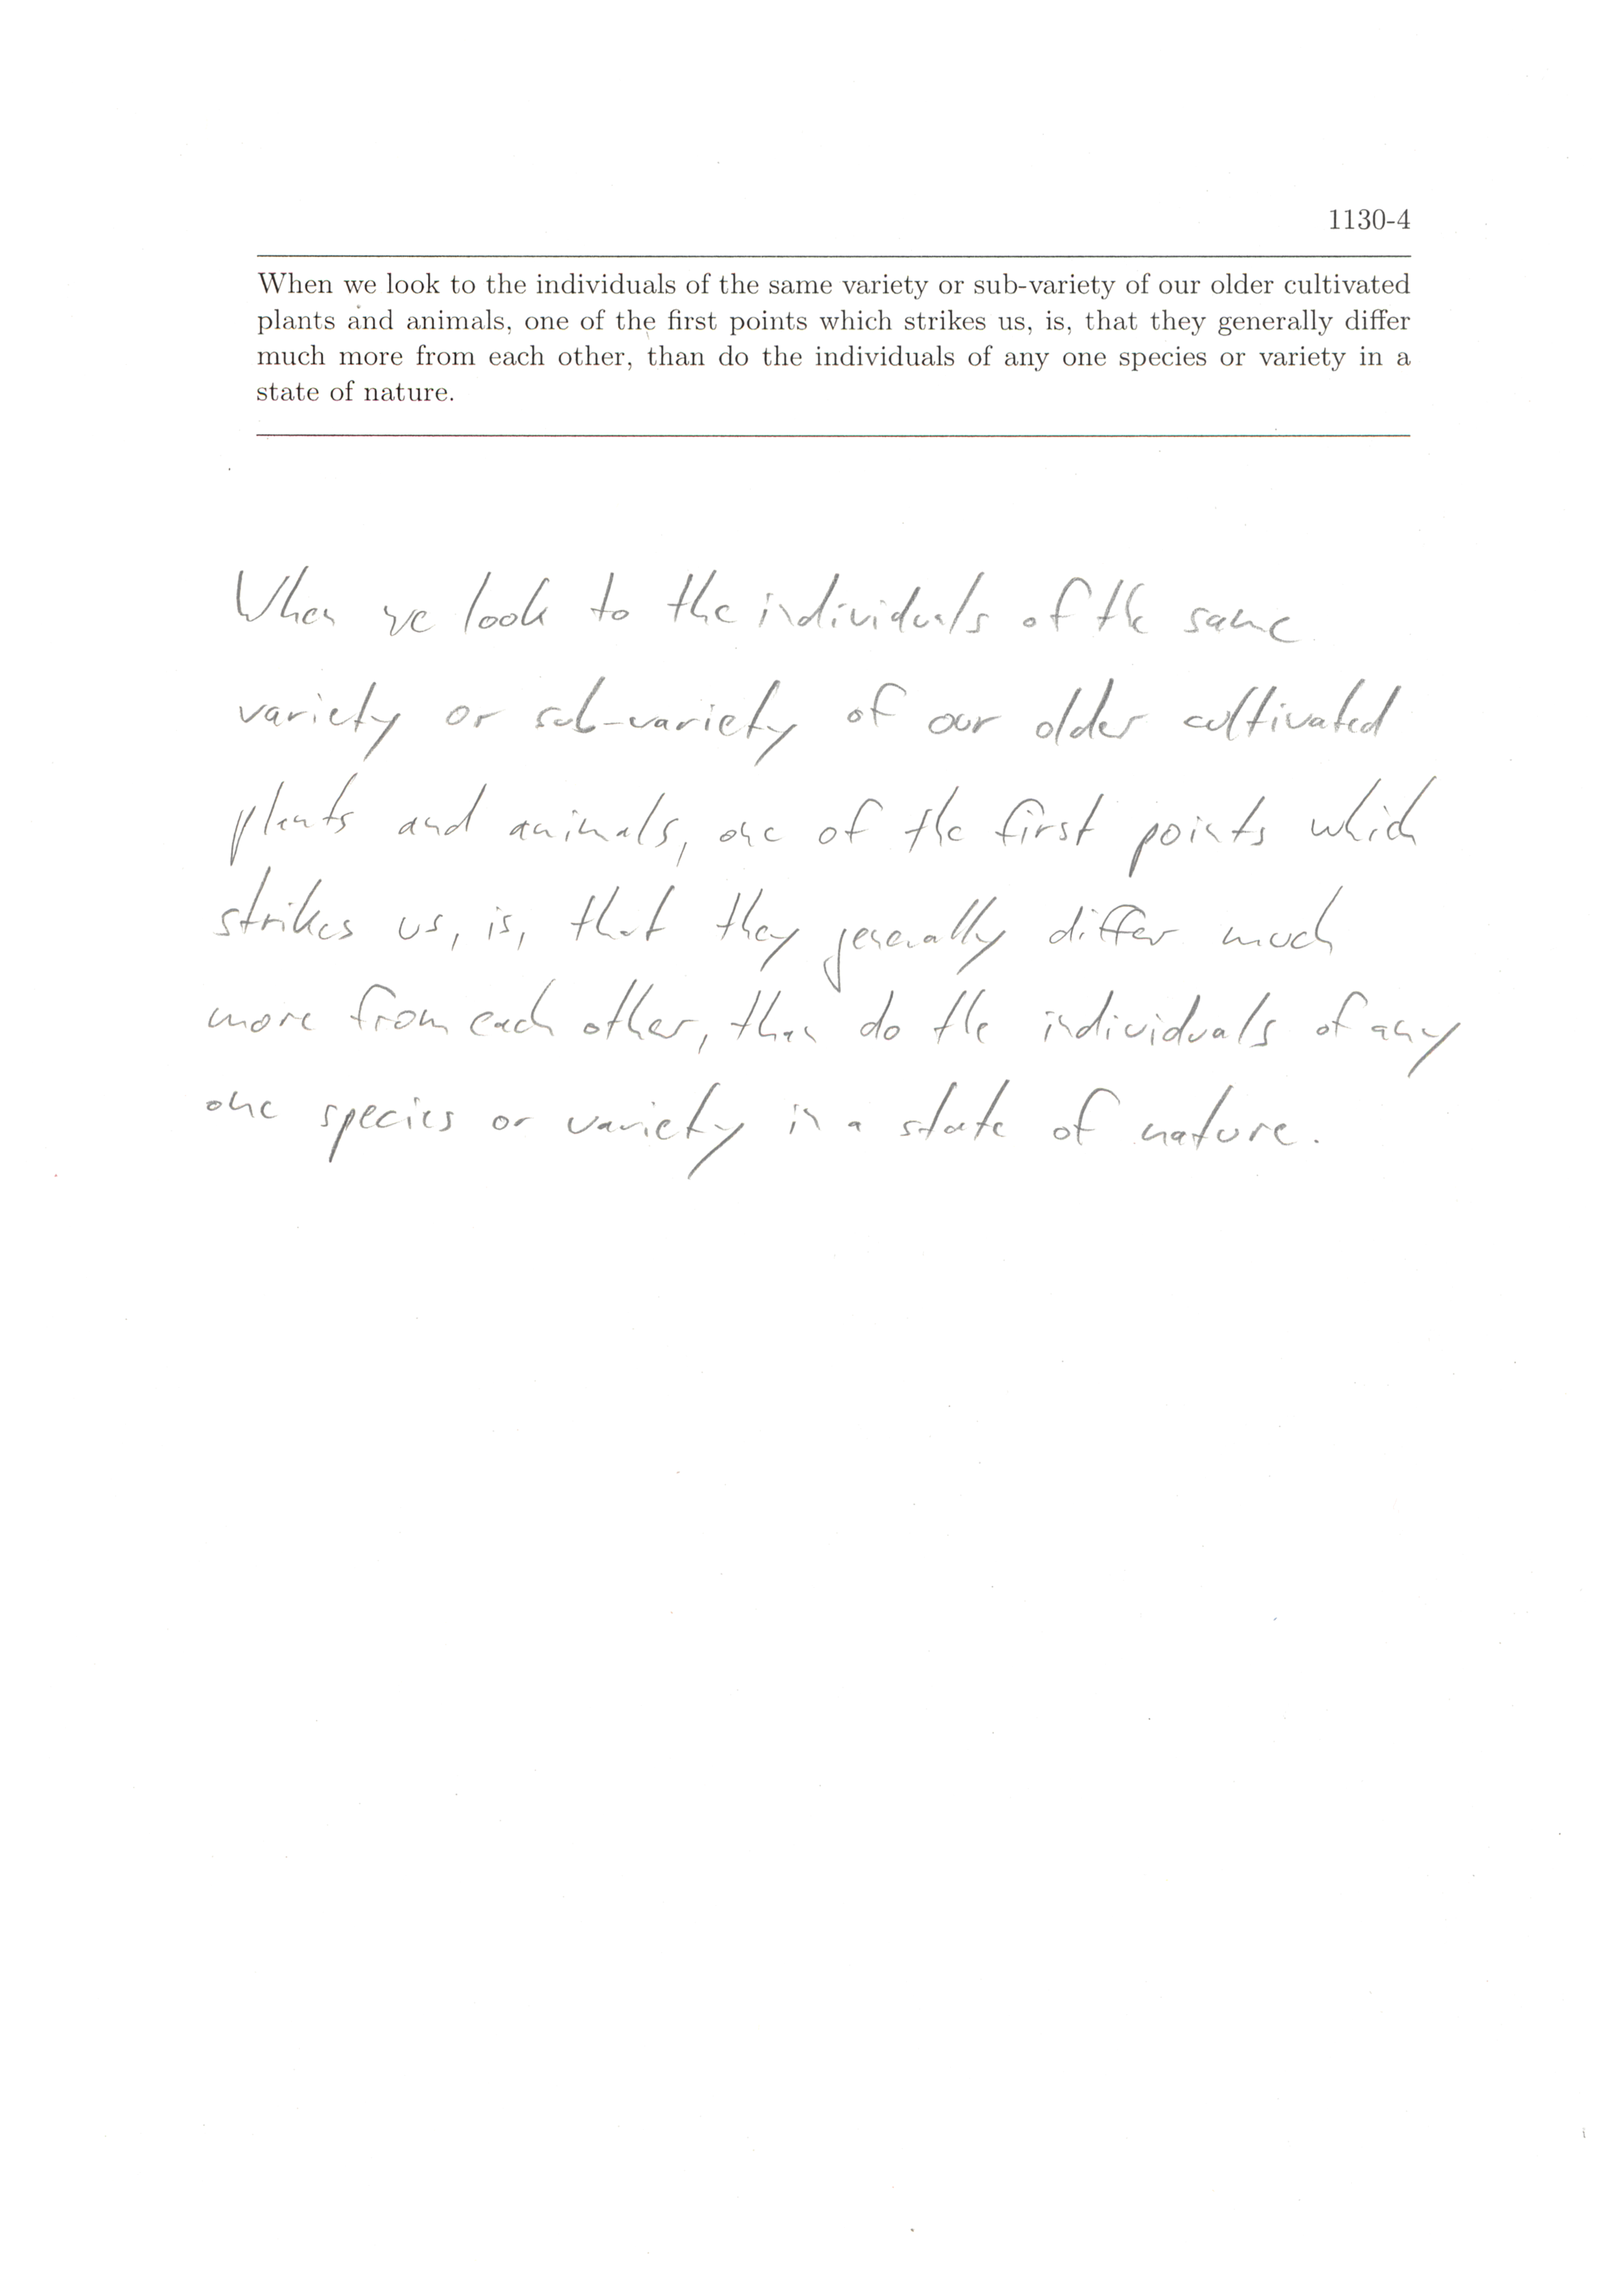 1130-4
When we look to the individuals of the same variety or sub-variety of our older cultivated
plants and animals, one of the first points which strikes us, is, that they generally differ
much more from each other, than do the individuals of any one species or variety in a
state of nature.
When we look to the individuals of the same
variety or sub-variety of our older cultivated
plants and animals, one of the first points which
strikes us, is, that they generally differ much
more from each other, than do the individuals of any
one species or variety in a state of nature.